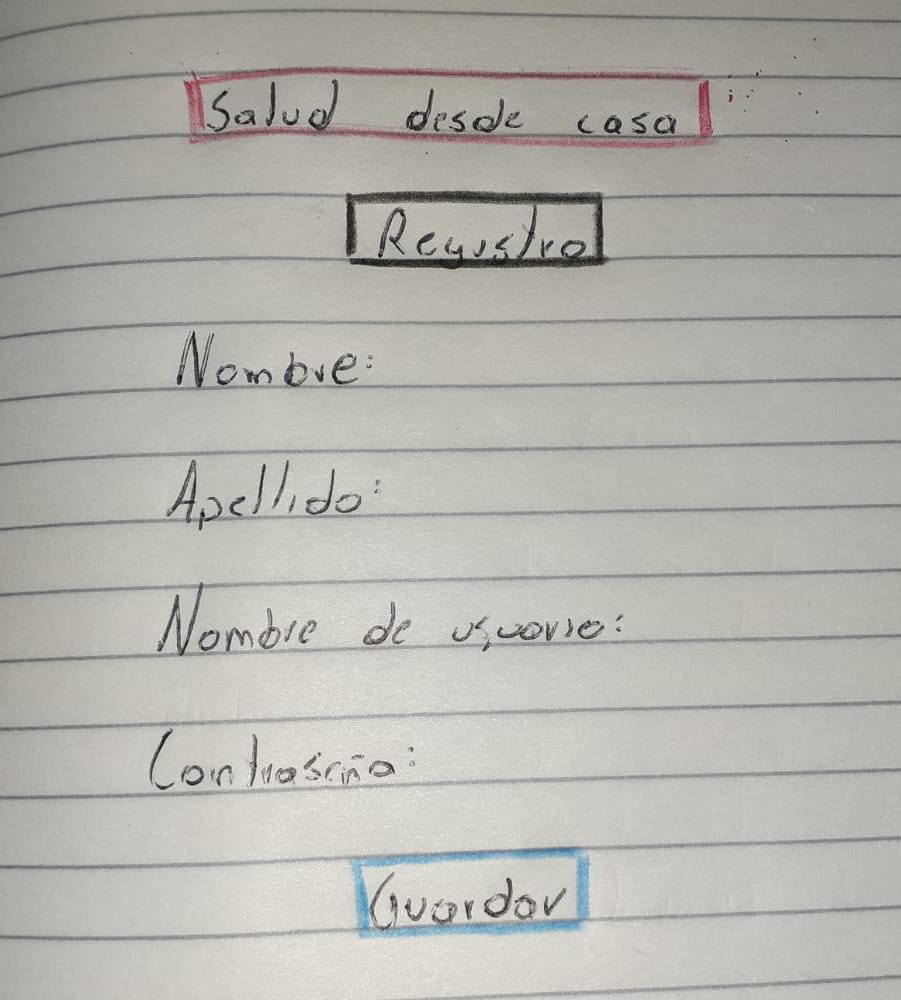 Salud desde casa
Registro
Nombre:
Apellido:
Nombre de usuario:
Contraseña:
Guardar